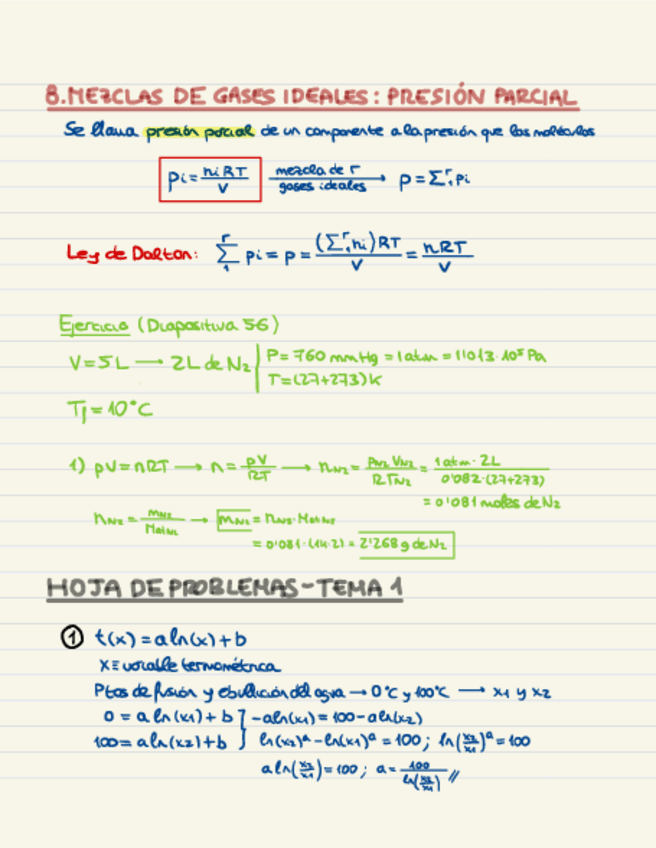 8. MEZCLAS DE GASES IDEALES: PRESIÓN PARCIAL
Se llama presión parcial de un componente a la presión que las moléculas
pi = niRT/V mezcla de r gases ideales → p = Σ₁ʳ pi
Ley de Dalton: Σ₁ʳ pi = p = (Σ₁ʳ ni)RT/V = nRT/V
Ejercicio (Diapositiva 56)
V = 5L → 2L de N₂ | P = 760 mmHg = 1 atm = 1'1013·10⁵ Pa
T = (27+273) K
Tf = 10°C
1) pV = nRT → n = pV/RT → nN₂ = PN₂ VN₂/R TN₂ = 1 atm · 2L/0'082·(27+273)
= 0'081 moles de N₂
nN₂ = mN₂/MolN₂ → mN₂ = nN₂·MolN₂
= 0'081·(14·2) = 2'268 g de N₂
HOJA DE PROBLEMAS - TEMA 1
① t(x) = a ln(x) + b
x ≡ variable termométrica
Ptos de fusión y ebullición del agua → 0°C y 100°C → x₁ y x₂
0 = a ln(x₁) + b } -aln(x₁) = 100 - aln(x₂)
100 = a ln(x₂) + b } ln(x₂)ᵃ - ln(x₁)ᵃ = 100; ln(x₂/x₁)ᵃ = 100
a ln(x₂/x₁) = 100; a = 100/ln(x₂/x₁) //